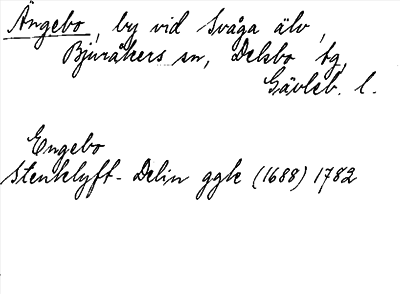 Ängebo, by vid Svåga älv,
Bjuråkers sn, Delsbo tg,
Gävleb. l.
Engebo
Stenklyft - Delin ggk (1688) 1782